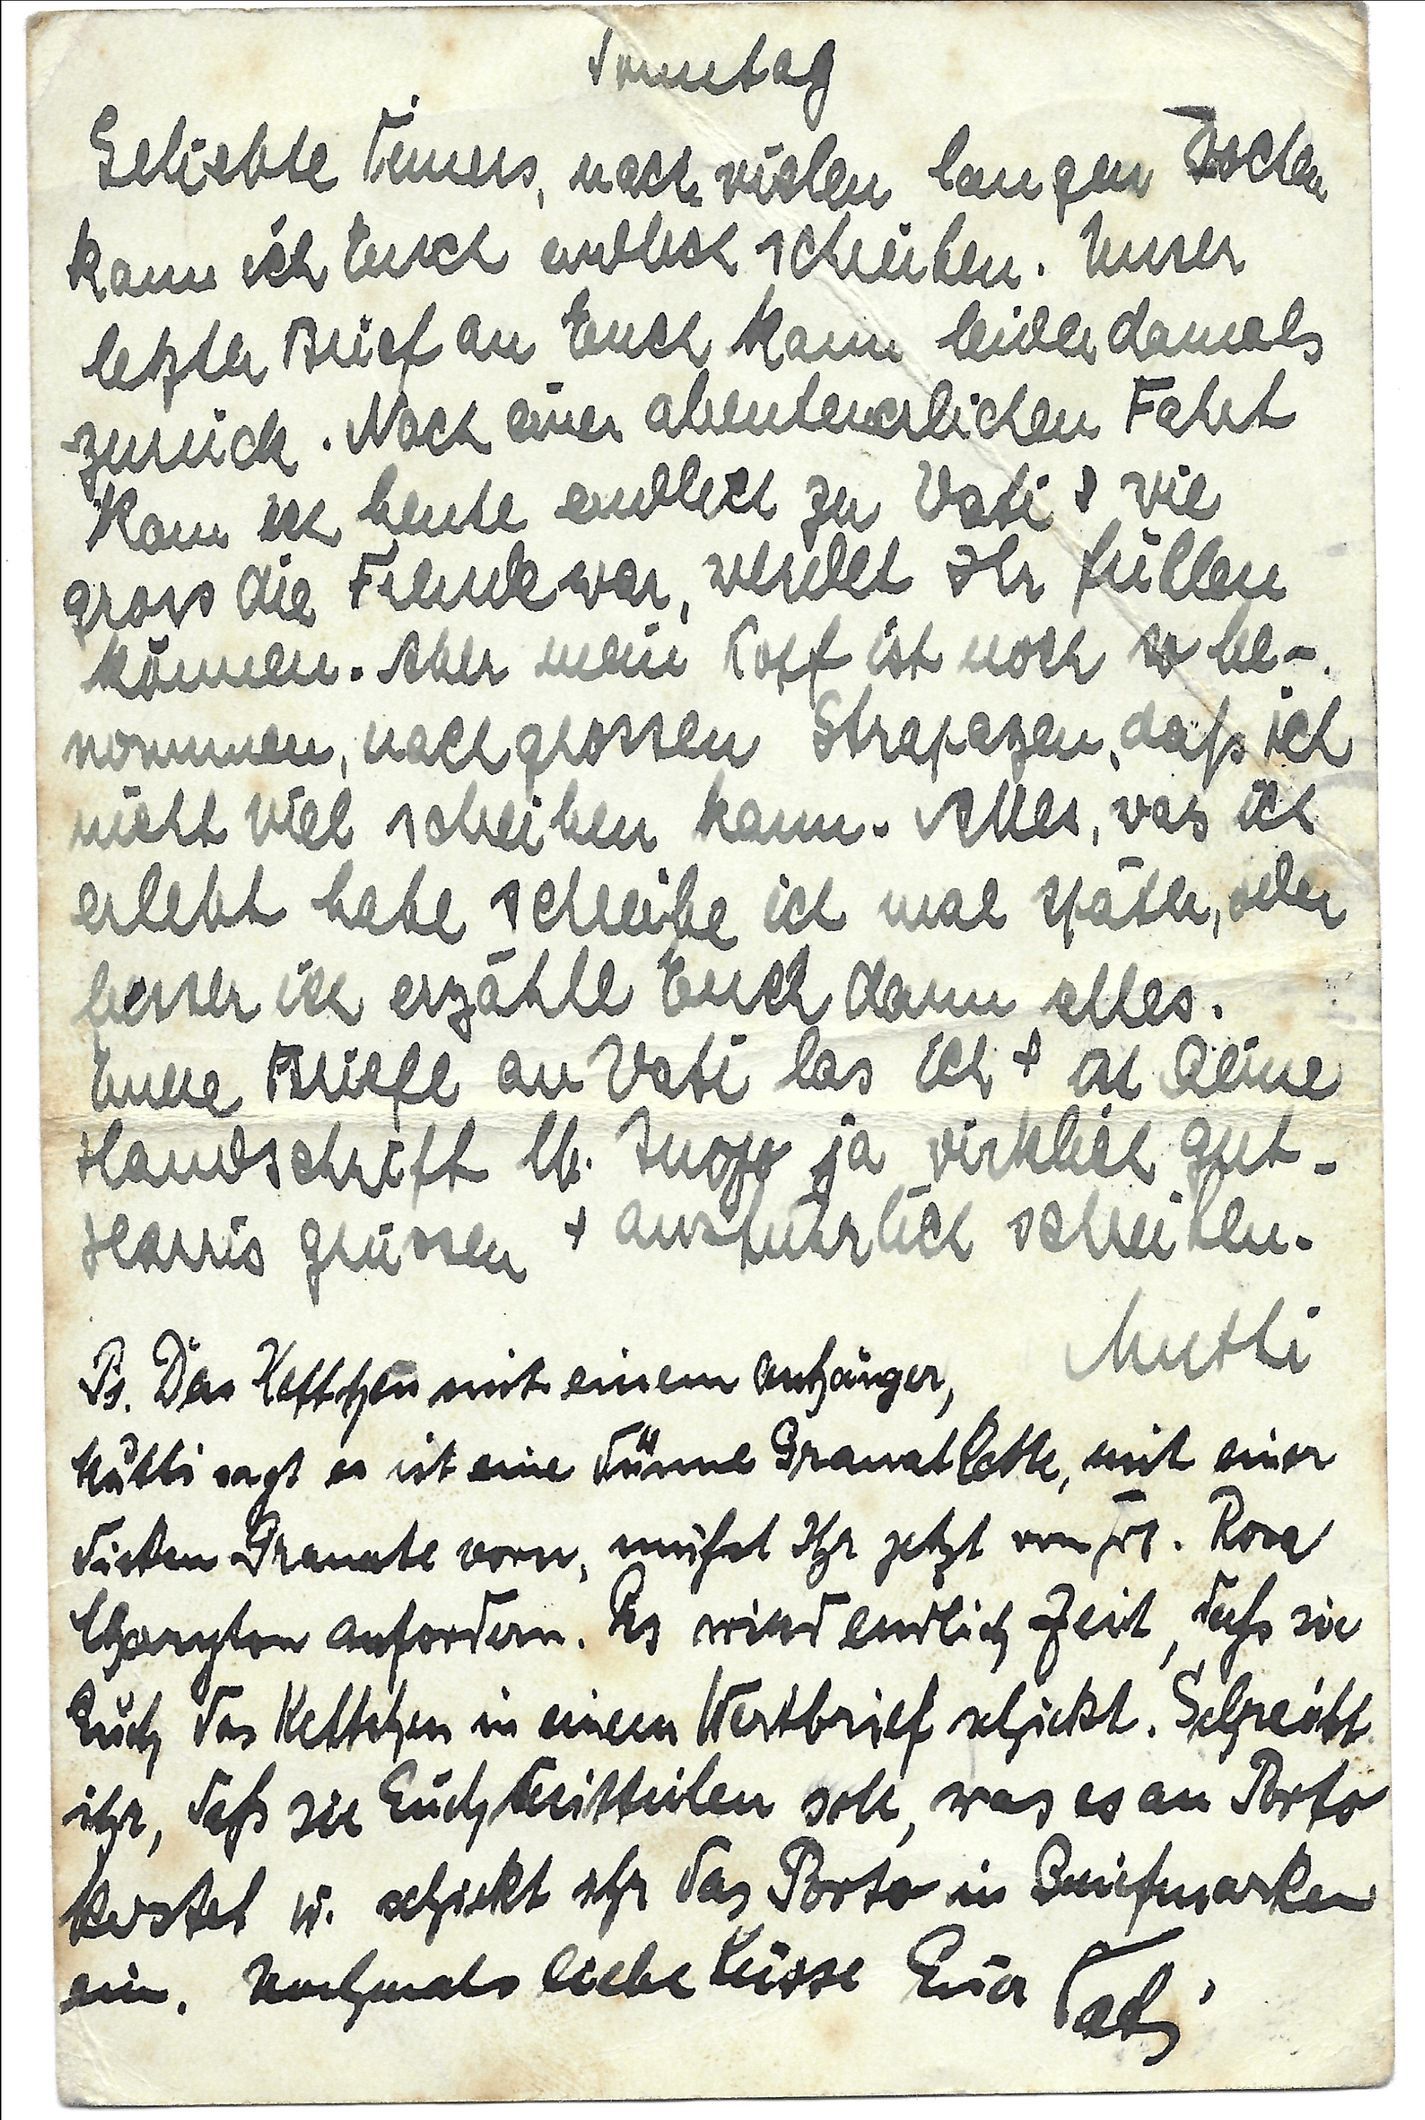 Sonntag
Geliebte, nach vielen langen Wochen
kann ich Euch endlich schreiben. Unser
letzter Brief an Euch kam leider damals
zurück. Nach einer abenteuerlichen Fahrt
kam ich heute endlich zu Vati & wie
gross die Freude war, werdet Ihr fühlen
können. Aber mein Kopf ist noch so be-
nommen, nach grossen Strapazen, daß ich
nicht viel schreiben kann. Alles, was ich
erlebt habe schreibe ich mal später, oder
besser ich erzähle Euch dann alles.
Eure Briefe an Vati las ich & ist Deine
Handschrift lb. ja wirklich gut.
Harris grüssen & ausführlich schreiben.
Mutti
Ps. Das Kettchen mit einem Anhänger,
Mutti sagt es ist eine dünne Granatkette, mit einer
dicken Granate vorn, müßt Ihr jetzt von Fr. Rosa
anfordern. Es wird endlich Zeit, daß sie
Euch das Kettchen in einem Wertbrief schickt. Schreibt
ihr, daß sie Euch mitteilen soll, was es an Porto
kostet u. schickt ihr das Porto in Briefmarken
ein. Nochmals liebe Küsse Euer Vati